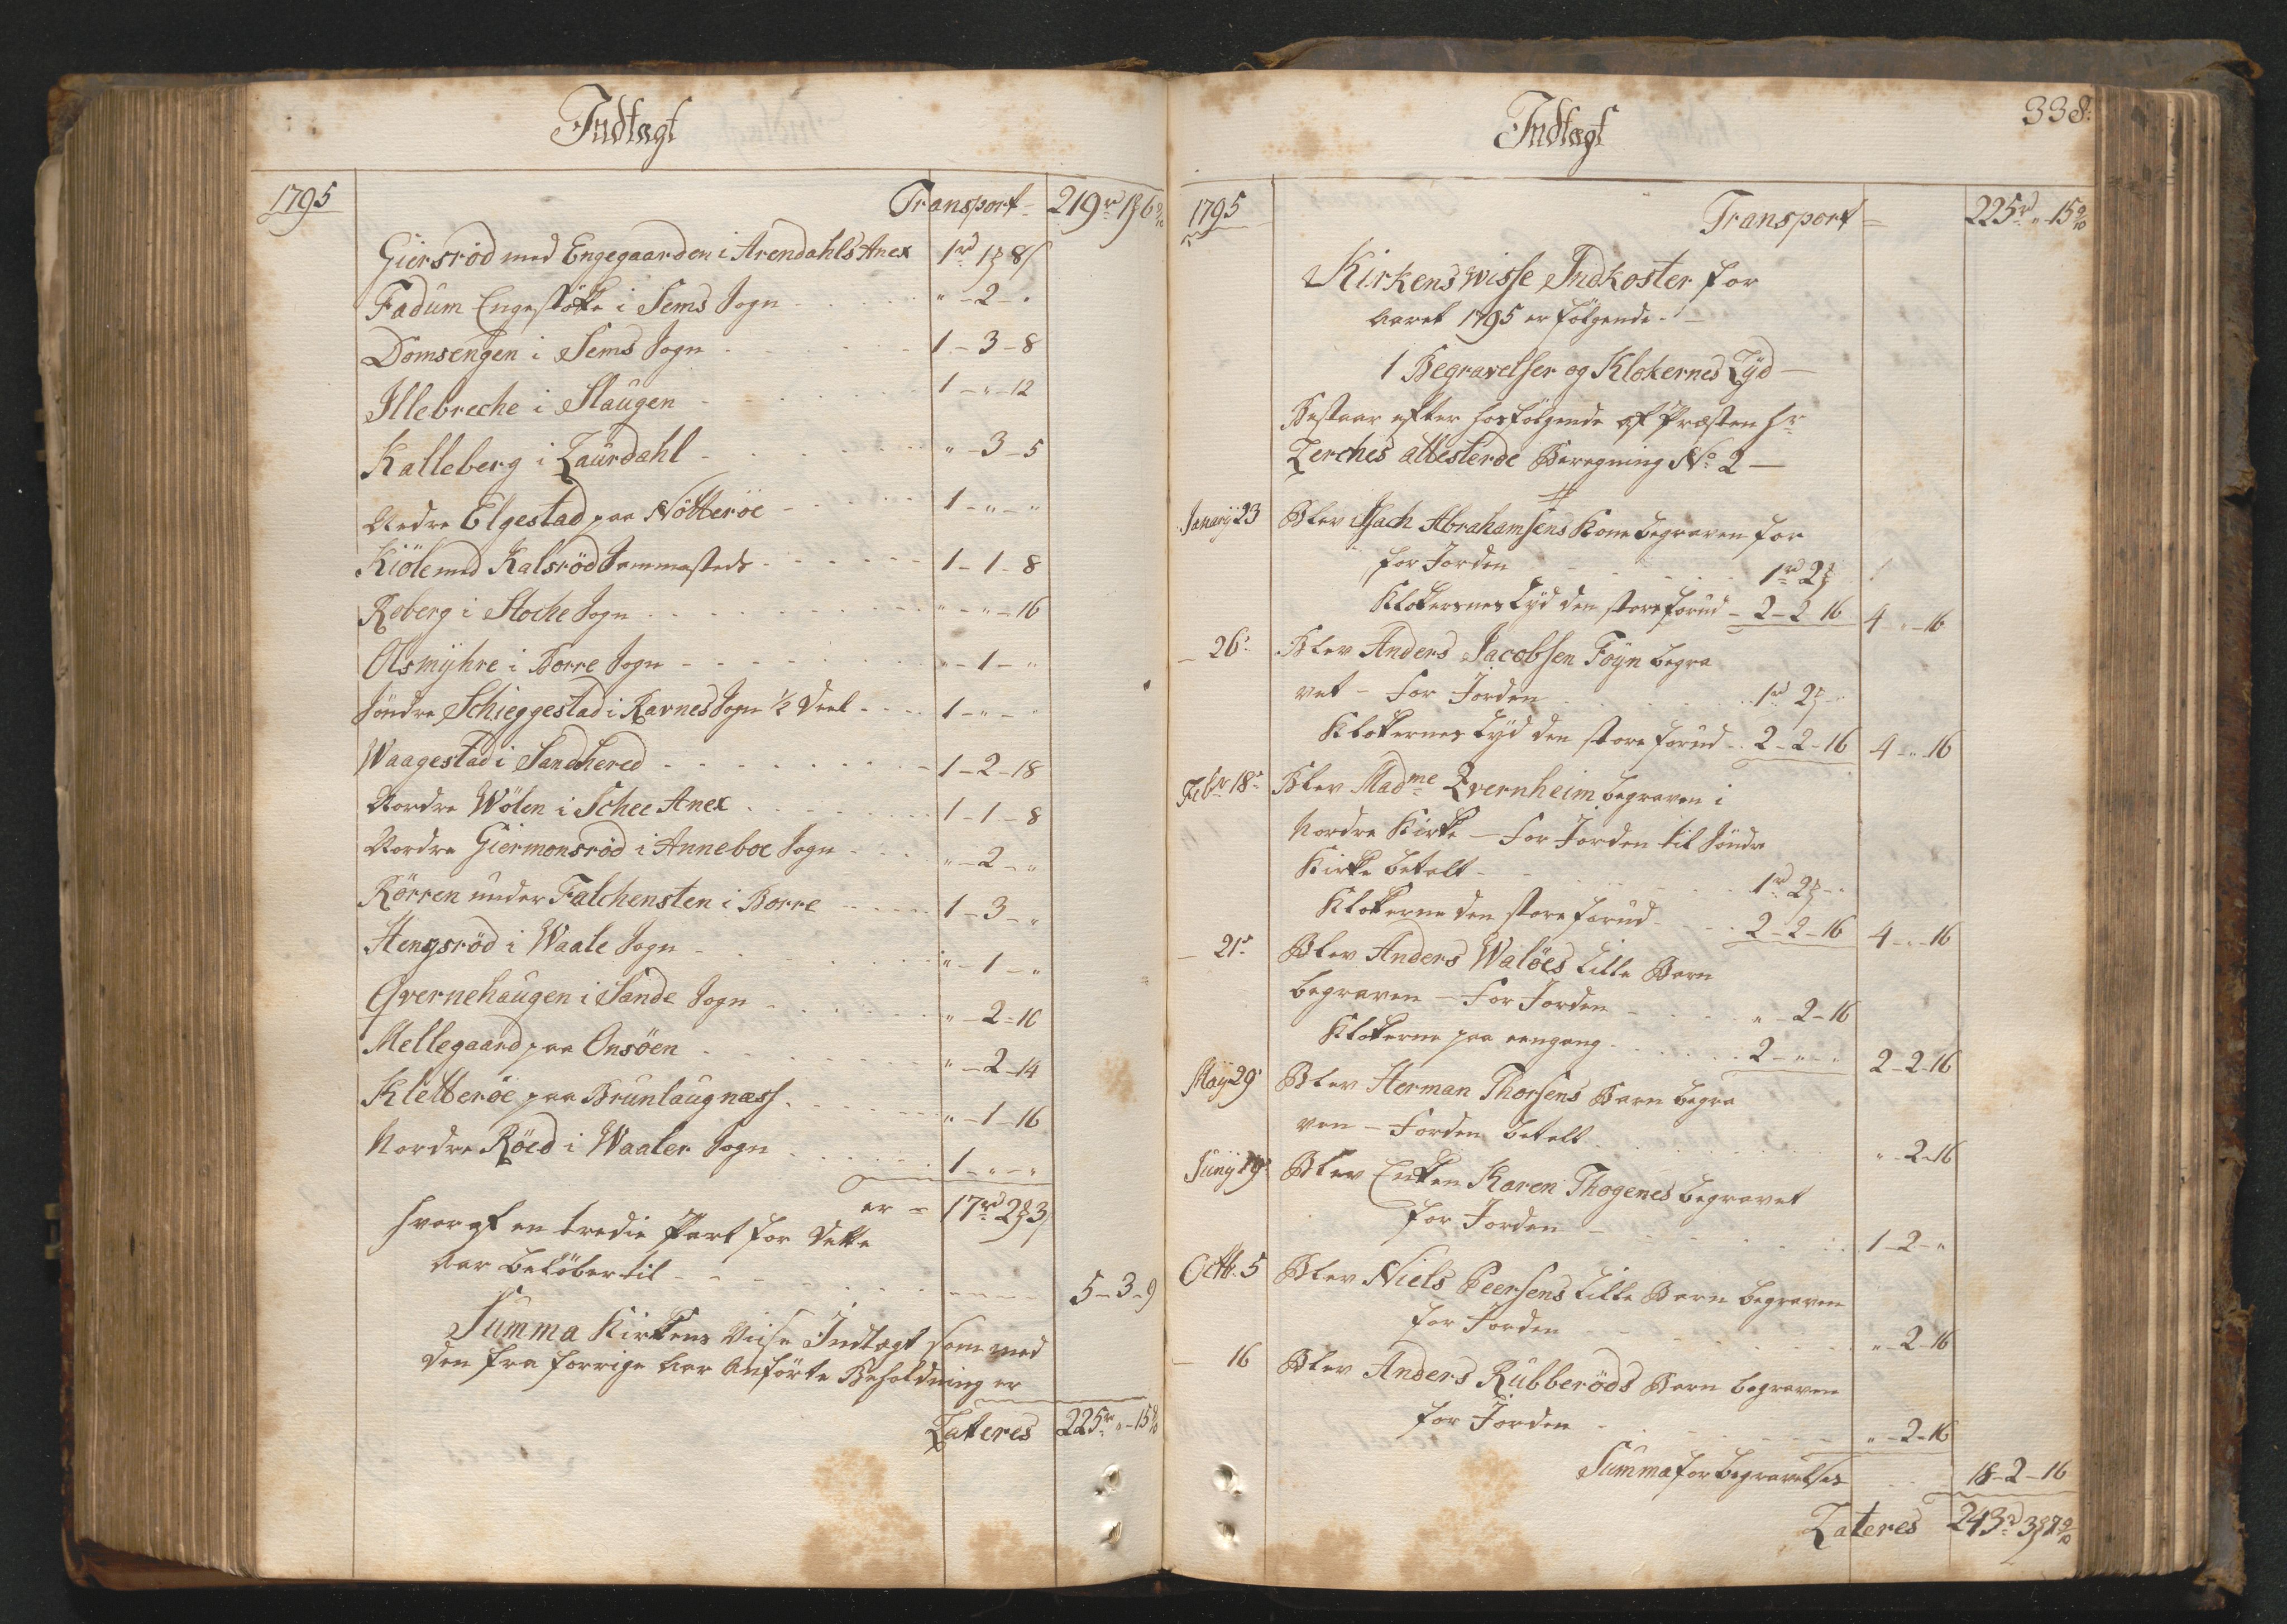 Indtægt
1795
Transport - 219rd 1 ƶ 6 9/10
Giersröd med Engegaarden i Arendahls Anex 1rd 1 ƶ 8 s
Fadum Engestökke i Sems Sogn " - 2 - "
Domsengen i Sems Sogn 1 - 3 - 8
Illebreche i Slaugen 1 - " - 12
Kalleberg i Laurdahl " - 3 - 5
Nedre Elgestad paa Nötteröe 1 - " - "
Kiöle med Kalsröd sammesteds 1 - 1 - 8
Roberg i Stoche Sogn " - " - 16
Olsmÿhre i Borre Sogn " - 1 - "
Söndre Schieggestad i Ravnes Sogn ½ deel 1 - " - "
Waagestad i Sandhered 1 - 2 - 18
Nordre Wölen i Schee Anex 1 - 1 - 8
Nordre Giermonsröd i Anneboe Sogn " - 2 - "
Rörren under Falchensten i Borre 1 - 3 - "
Hengsröd i Waale Sogn " - 1 - "
Qvernehaugen i Sande Sogn " - 2 - 10
Mellegaard paa Onsöen " - 2 - 14
Kletteröe paa Brunlaugnæss " - 1 - 16
Nordre Röed i Waaler Sogn 1 - " - "
er = 17rd 2 ƶ 3 s
hvoraf en tredie Part for dette
Aar beløber til 5 - 3 - 9
Summa Kirkens Visse Indtægt som med
den fra forrige Aar Anförte Beholdning er
Lateres 225rd " - 15 9/10
Indtægt
338.
1795
Transport = 225rd " - 15 9/10
Kirkens wisse Indkoster for
Aaret 1795 er fölgende. -
1 Begravelser og Klokernes Lyd -
Bestaar efter hosfölgende af Præsten Hr
Lerches attesterde Beregning No 2 -
Januarÿ 23 Blev Isach Abrahamsens Kone begraven for
for Jorden 1rd 2 ƶ
Klokkernes Lyd den store forud - 2 - 2 - 16 4 - " - 16
- 26: Blev Anders Jacobsen Foÿn begra
vet - for Jorden 1rd 2 ƶ
Klokkernes Lyd den store forud - 2 - 2 - 16 4 - " - 16
Febr 18: Blev Madme Qvernheim begraven i
Nordre Kirke - for Jorden til Söndre
Kirke betalt - 1rd 2 ƶ - "
Klokkerne den store forud - 2 - 2 - 16 4 - " - 16
- 21: Blev Anders Walöes lille Barn
begraven - for Jorden " - 2 - 16
Klokkerne paa eengang 2 - " - " 2 - 2 - 16
Maÿ 29: Blev Herman Thorsens Barn begra
ven - Jorden betalt " - 2 - 16
Junÿ 19: Blev Enken Karen Thogenes begravet
for Jorden 1 - 2 - "
Octb. 5 Blev Niels Peersens lille Barn begraven
for Jorden " - 2 - 16
- 16 Blev Anders Rubberöds Barn begraven
for Jorden " - 2 - 16
Summa for begravelser 18 - 2 - 16
Lateres 243rd 3 ƶ 7 9/10